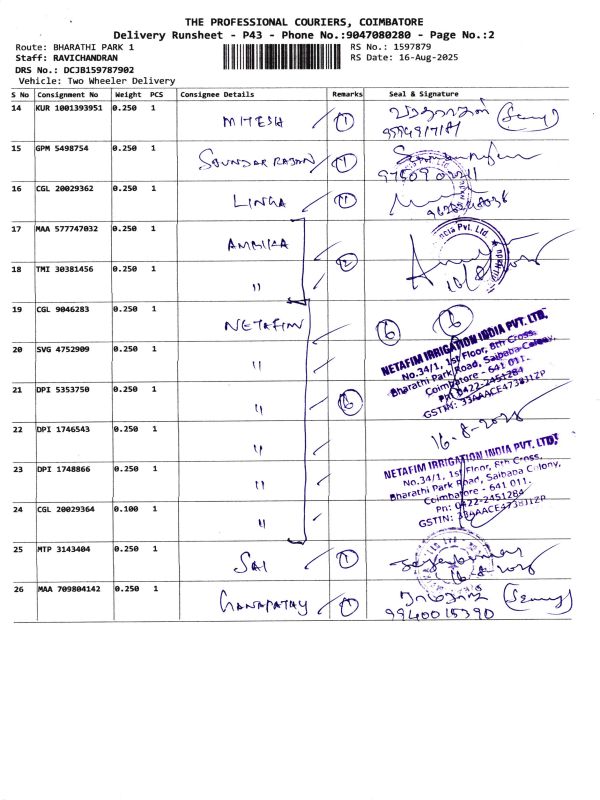 THE PROFESSIONAL COURIERS, COIMBATORE
Delivery Runsheet - P43 - Phone No.:9047080280 - Page No.:2
Route: BHARATHI PARK 1 RS No.: 1597879
Staff: RAVICHANDRAN RS Date: 16-Aug-2025
DRS No.: DCJB159787902
Vehicle: Two Wheeler Delivery
S No Consignment No Weight PCS Consignee Details Remarks Seal & Signature
14 KUR 1001393951 0.250 1 MITESH 1
15 GPM 5498754 0.250 1 SOUNDAR RAJAN 1
16 CGL 20029362 0.250 1 LINGA 1
17 MAA 577747032 0.250 1 AMBIKA
ncia Pvt. Ltd
2
18 TMI 30381456 0.250 1 "
19 CGL 9046283 0.250 1 NETAFIM 6 6
20 SVG 4752909 0.250 1 "
NETAFIM IRRIGATION INDIA PVT. LTD.
No.34/1, 1st Floor, 8th Cross,
Bharathi Park Road, Saibaba Colony,
Coimbatore - 641 011.
Ph: 0422-2451284
GSTIN: 33AAACE4738J1ZP
21 DPI 5353750 0.250 1 " 6
22 DPI 1746543 0.250 1 "
16-8-2025
23 DPI 1748866 0.250 1 "
NETAFIM IRRIGATION INDIA PVT. LTD.
No.34/1, 1st Floor, 8th Cross,
Bharathi Park Road, Saibaba Colony,
Coimbatore - 641 011.
Ph: 0422-2451284
GSTIN: 33AAACE4738J1ZP
24 CGL 20029364 0.100 1 "
25 MTP 3143404 0.250 1 SAI 1
16/8/2025
26 MAA 709804142 0.250 1 GANAPATHY 1
9940015390